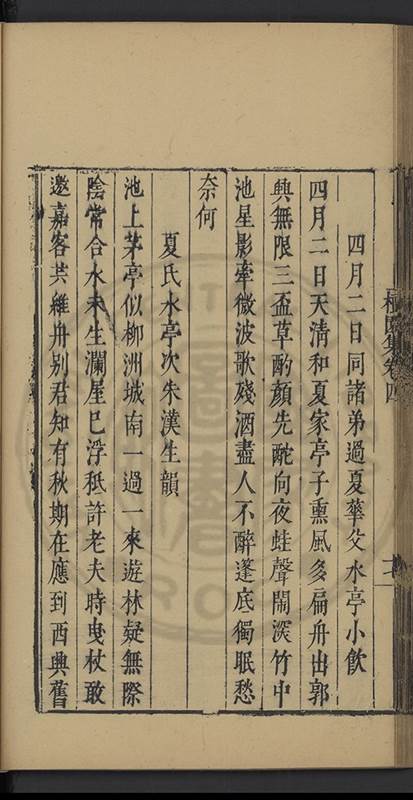 四月二日同諸弟過夏華父水亭小飲
四月二日天清和夏家亭子熏風多扁舟出郭
興無限三盃草酌顔先酡向夜蛙聲鬧深竹中
池星影牽微波歌殘酒盡人不醉蓬底獨眠愁
奈何
夏氏水亭次朱漢生韻
池上茅亭似柳洲城南一過一來遊林疑無際
陰常合水未生瀾屋已浮秪許老夫時曳杖敢
邀嘉客共維舟别君知有秋期在應到西興舊
集卷四